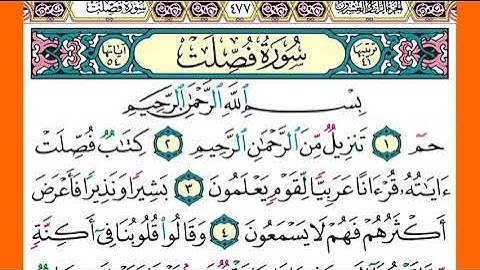 سُورَةُ فُصِّلَتْ ٤٧٧
ترتيبها ٤١ سُورَةُ فُصِّلَتْ آياتها ٥٤
بِسْمِ ٱللَّهِ ٱلرَّحْمَٰنِ ٱلرَّحِيمِ
حمٓ ١ تَنزِيلٌ مِّنَ ٱلرَّحْمَٰنِ ٱلرَّحِيمِ ٢ كِتَٰبٌ فُصِّلَتْ
ءَايَٰتُهُۥ قُرْءَانًا عَرَبِيًّا لِّقَوْمٍ يَعْلَمُونَ ٣ بَشِيرًا وَنَذِيرًا فَأَعْرَضَ
أَكْثَرُهُمْ فَهُمْ لَا يَسْمَعُونَ ٤ وَقَالُوا۟ قُلُوبُنَا فِىٓ أَكِنَّةٍ